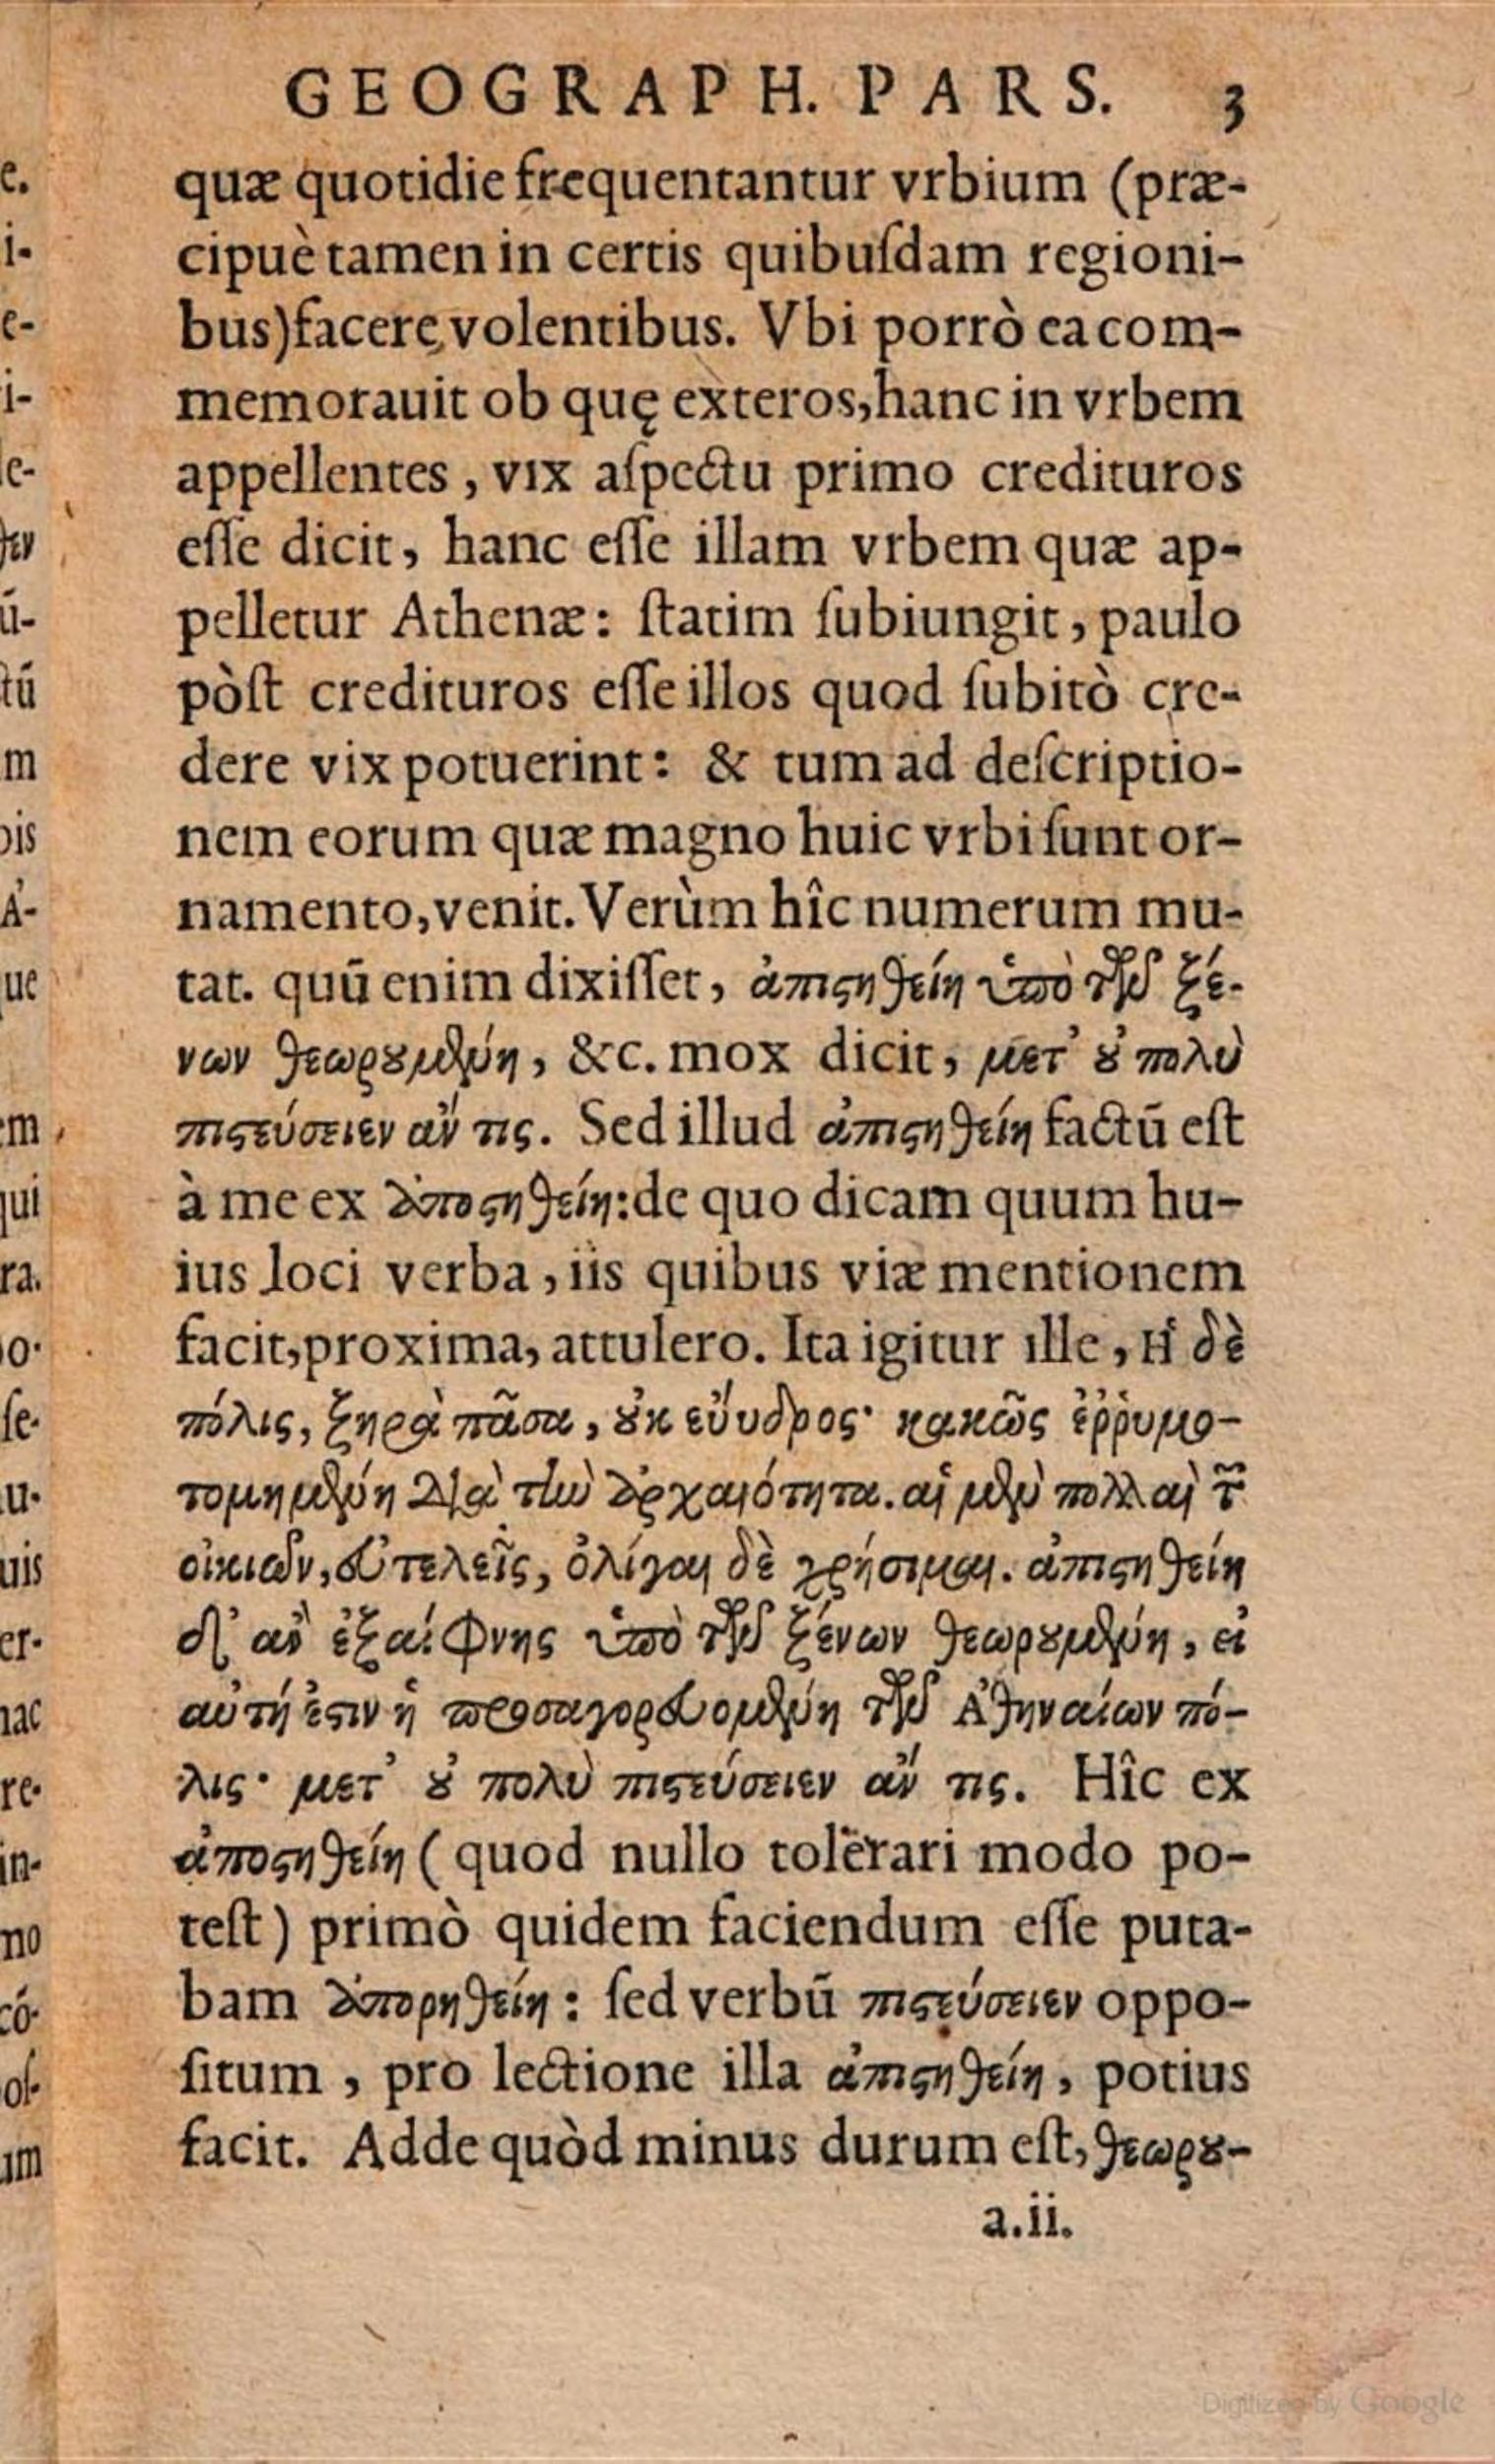 GEOGRAPH. PARS. 3
quæ quotidie frequentantur vrbium (præ-
cipuè tamen in certis quibuſdam regioni-
bus)facere volentibus. Vbi porrò ea com-
memorauit ob quę exteros,hanc in vrbem
appellentes, vix aſpectu primo credituros
eſſe dicit, hanc eſſe illam vrbem quæ ap-
pelletur Athenæ: ſtatim ſubiungit, paulo
pòſt credituros eſſe illos quod ſubitò cre-
dere vix potuerint: & tum ad deſcriptio-
nem eorum quæ magno huic vrbi ſunt or-
namento,venit. Verùm hîc numerum mu-
tat. quū enim dixiſſet, ἀπιϛηθείη ὑπὸ τῶν ξέ-
νων θεωρουμένη, &c. mox dicit, μετ᾽ οὐ πολὺ
πιϛεύσειεν ἄν τις. Sed illud ἀπιϛηθείη factū eſt
à me ex ἀποϛηθείη:de quo dicam quum hu-
ius loci verba, iis quibus viæ mentionem
facit,proxima, attulero. Ita igitur ille, Η῾ δὲ
πόλις, ξηρὰ πᾶσα, οὐκ εὔυδρος· κακῶς ἐῤῥυμο-
τομημένη διὰ τὴν ἀρχαιότητα. αἱ μὲν πολλαὶ τ῀
οἰκιῶν, εὐτελεῖς, ὀλίγαι δὲ χρήσιμαι. ἀπιϛηθείη
δ᾽ ἂν ἐξαίφνης ὑπὸ τῶν ξένων θεωρουμένη, εἰ
αὐτή ἐϛιν ἡ προσαγορευομένη τῶν Α᾽θηναίων πό-
λις· μετ᾽ οὐ πολὺ πιϛεύσειεν ἄν τις. Hîc ex
ἀποϛηθείη (quod nullo tolerari modo po-
teſt) primò quidem faciendum eſſe puta-
bam ἀπορηθείη: ſed verbū πιϛεύσειεν oppo-
ſitum, pro lectione illa ἀπιϛηθείη, potius
facit. Adde quòd minus durum eſt, θεωρου-
a.ii.
Digitized by Google